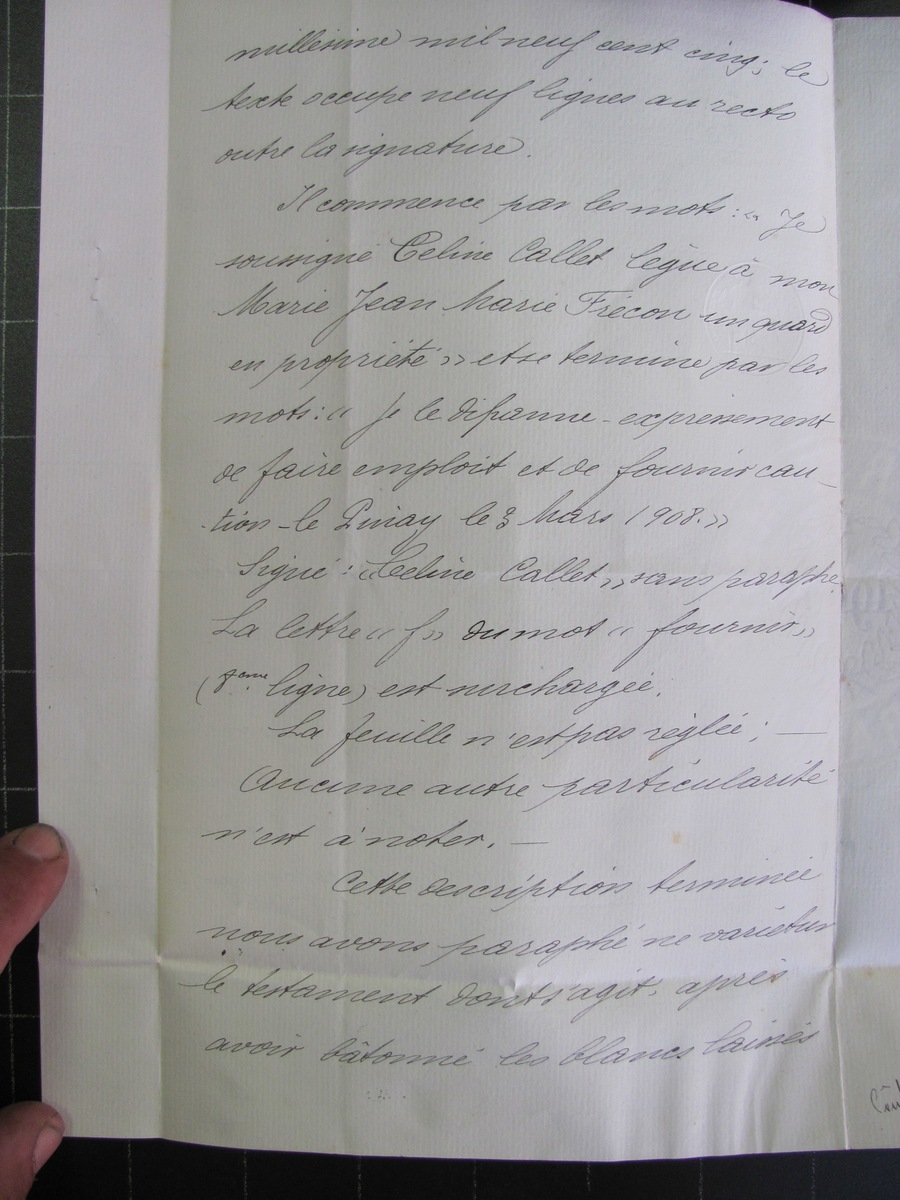 millesime mil neuf cent cinq; le
texte occupe neuf lignes au recto
outre la signature.
Il commence par les mots: « Je
soussigné Celine Callet lègue à mon
Marie Jean Marie Frécon un quard
en propriété » et se termine par les
mots: « Je le dipanne expressement
de faire emploit et de fournir cau-
-tion - le Pinay le 3 Mars 1908. »
Signé: « Celine Callet » sans paraphe.
La lettre « f » du mot « fournir »
(8eme ligne) est surchargée.
La feuille n'est pas réglée; —
Aucune autre particularité
n'est à noter. —
Cette description terminée
nous avons paraphé ne varietur
le testament dont s'agit, après
avoir bâtonné les blancs laissés